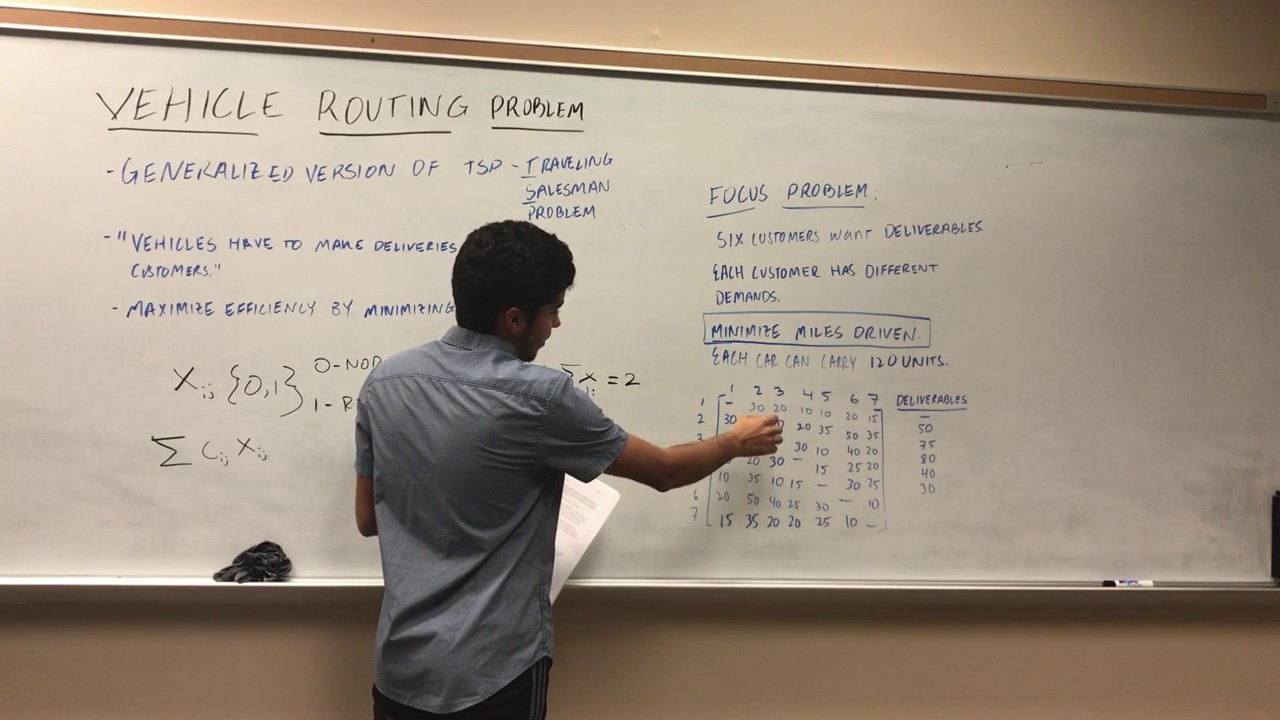 VEHICLE ROUTING PROBLEM
- GENERALIZED VERSION OF TSP - TRAVELING
SALESMAN
PROBLEM
- "VEHICLES HAVE TO MAKE DELIVERIES
CUSTOMERS."
- MAXIMIZE EFFICIENCY BY MINIMIZING
Xij {0,1} 0-NOD
1-R
Σ Cij Xij
= 2
FOCUS PROBLEM:
SIX CUSTOMERS WANT DELIVERABLES
EACH CUSTOMER HAS DIFFERENT
DEMANDS.
MINIMIZE MILES DRIVEN.
EACH CAR CAN CARRY 120 UNITS.
1 2 3 4 5 6 7 DELIVERABLES
1 - 30 20 10 10 20 15 -
2 30 20 35 50 35 50
30 10 40 20 75
20 30 - 15 25 20 80
10 35 10 15 - 30 25 40
6 20 50 40 25 30 - 10 30
7 15 35 20 20 25 10 -